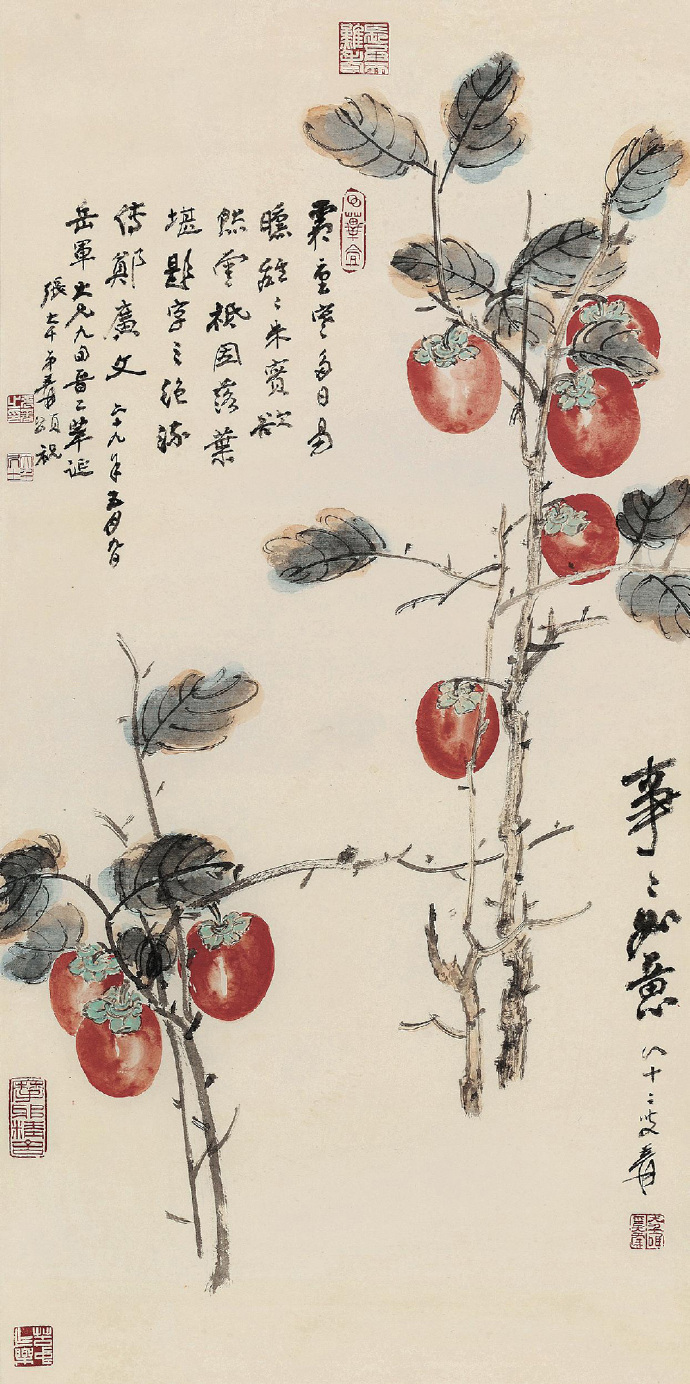 霜重寒多日易
曛離〻朱實欲
然雲祗因落葉
堪題字三絕
傳鄭廣文 六十九年五月九日
岳軍大兄九旬晉二華誕
張大千弟爰頌祝
事〻如意
八十二叟爰